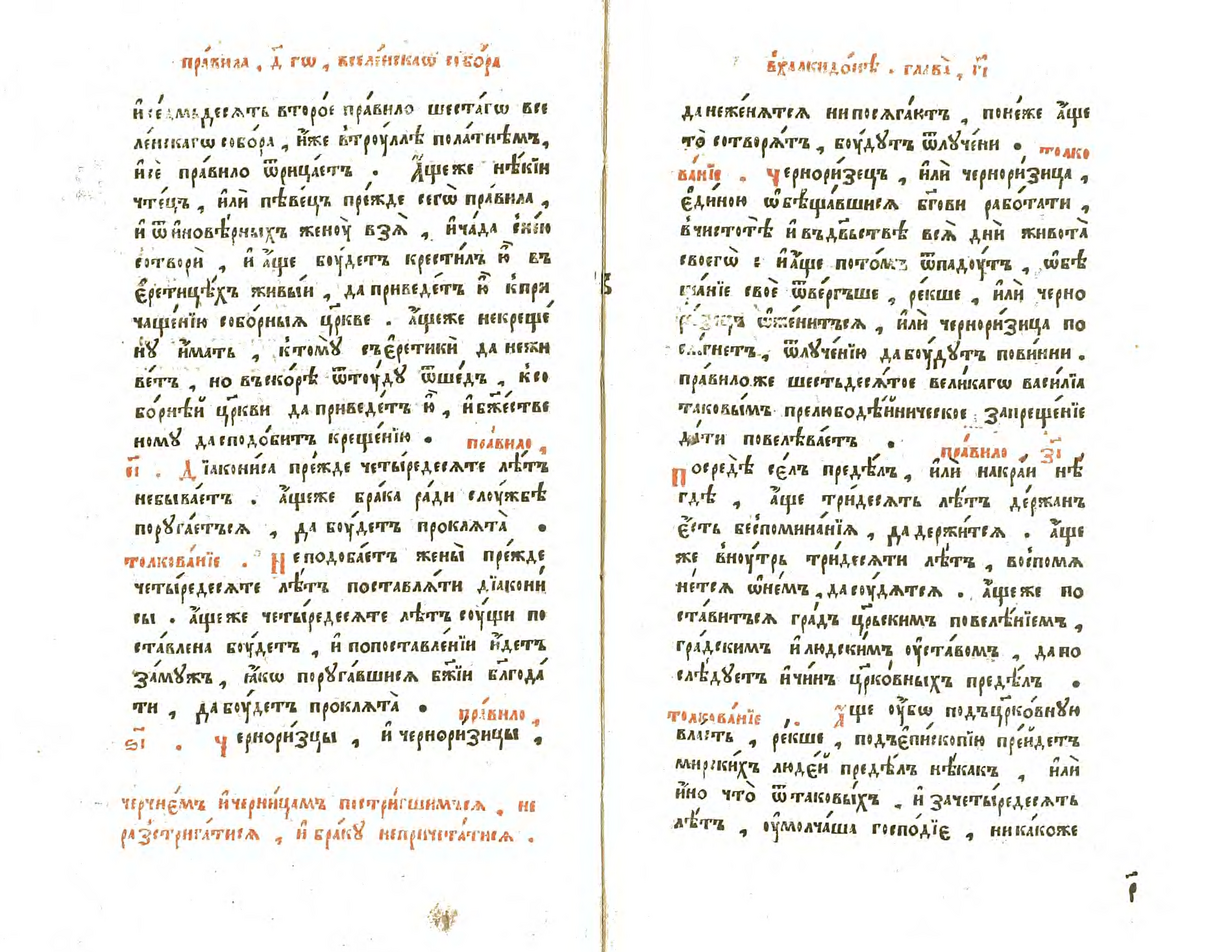 пра́вила , д҃ гѡ , вселе́нскаѡ собо́ра
и҆ се́дмьдесѧть второ́е пра́вило шеста́гѡ все
ле́нскагѡ собо́ра , и҆́же втрꙋ́ллѣ пола́тнѣмъ ,
и҆сѐ пра́вило ѿрица́етъ . А҆́щеже нѣ́кїи
чте́цъ , и҆лѝ пѣве́цъ пре́жде сегѡ̀ пра́вила ,
и҆ ѿи҆новѣ́рныхъ женоу̀ взѧ̀ , и҆ча́да с не́ю
сотворѝ , и҆ а҆́ще боу́детъ крести́лъ ю҆̀ въ
є҆рети́цѣхъ живы́и , да приведе́тъ ю҆̀ кпри
чаще́нїю собо́рныѧ цр҃кве . а҆́щеже некреще́
нꙋ и҆́мать , ктомꙋ̀ съє҆ретикѝ да нежи
ве́тъ , но въско́рѣ ѿтоу́дꙋ ѿше́дъ , ксо
бо́рнѣй цр҃кви да приведе́тъ ю҆̀ , и҆бж҃е́стве
номꙋ̀ да сподо́битъ креще́нїю . пра́вило ,
є҃і . Дїа́кониса пре́жде четы́редесѧте лѣ́тъ
небыва́етъ . а҆́щеже бра́ка ра́ди слоу́жбѣ
порꙋга́етьсѧ , да боу́детъ проклѧта̀ .
толкова́нїе . Неподоба́етъ жены̀ пре́жде
четы́редесѧте лѣ́тъ поставлѧ́ти дїа́кони
сы . а҆́щеже четы́редесѧте лѣ́тъ соу́щи по
ста́влена боу́детъ , и҆ попоставле́нїи и҆́детъ
за́мꙋжъ , ꙗ҆́кѡ порꙋга́вшисѧ бж҃їи бл҃года́
ти , да боу́детъ проклѧта̀ . пра́вило ,
ѕ҃і . Чернори́зцы , и҆ черноризицы ,
черчнє́мъ и҆черни́цамъ постри́гшимъсѧ , не
разстрига́тисѧ , и҆ бра́кꙋ непричета́тисѧ .
в҆халкидо́нѣ . глава̀ , г҃і
да неже́нѧтсѧ ни посѧга́ютъ , поне́же а҆́ще
то̀ сотворѧ́тъ , боу́дꙋтъ ѿлꙋ́чени . толко
ва́нїе . Черноризе́цъ , и҆лѝ чернори́зица ,
є҆ди́ною ѡ҆бѣща́вшисѧ бг҃ови рабо́тати ,
вчистотѣ̀ и҆ въдѣ́вьствѣ всѧ̀ днѝ живота̀
своегѡ̀ : и҆а҆́ще пото́мъ ѿпадоу́тъ , ѡ҆бѣ
ща́нїе своѐ ѿве́ргъше , ре́кше , и҆лѝ черно
ри́зецъ ѡ҆же́нитьсѧ , и҆лѝ чернори́зица по
сѧ́гнетъ , ѿлꙋче́нїю да боу́дꙋтъ пови́нни .
пра́виложе шестьдесѧ́тое вели́кагѡ васи́лїа
таковы́мъ прелюбодѣ́йническое запреще́нїе
да́ти повелѣва́етъ . пра́вило , з҃і
Посредѣ̀ се́лъ предѣ́лъ , и҆лѝ накра́и нѣ́
гдѣ , а҆́ще три́десѧть лѣ́тъ де́ржанъ
є҆́сть беспомина́нїѧ , да держи́тсѧ . а҆́ще
же внꙋ́трь три́десѧти лѣ́тъ , воспомѧ
не́тсѧ ѡ҆не́мъ , да соу́дѧтсѧ . а҆́щеже по
ста́витьсѧ гра́дъ цр҃ьскимъ повелѣ́нїемъ ,
гра́дскимъ и҆людскимъ оу҆ста́вомъ , да по
слѣ́дꙋетъ и҆чи́нъ цр҃ко́вныхъ предѣ́лъ .
толкова́нїе . А҆́ще оу҆́бѡ подъцр҃ко́внꙋю
вла́сть , ре́кше , подъє҆писко́пїю пре́йдетъ
мирски́хъ люде́й предѣ́лъ нѣ́какъ , и҆лѝ
и҆́но что̀ ѿтаковы́хъ , и҆ зачеты́редесѧть
лѣ́тъ , оу҆молча́ша госпо́дїє , ника́коже
р҃